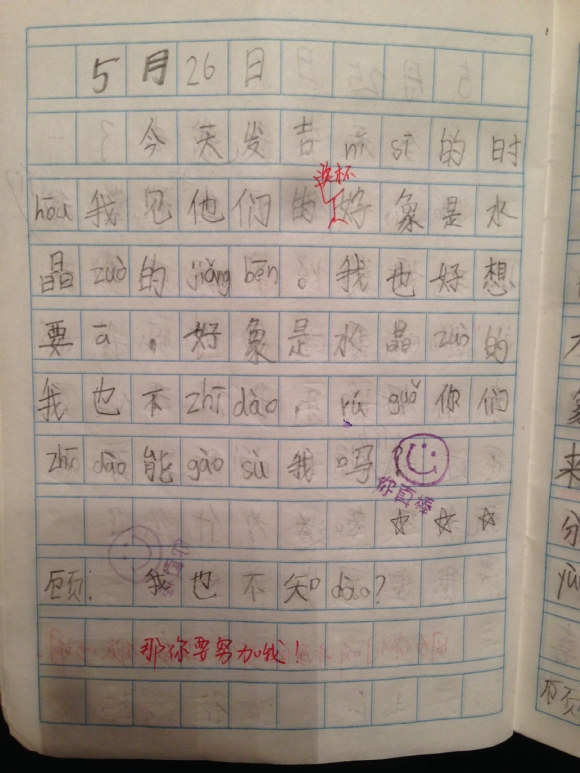 5月26日
今天发吉nī sī的时
奖杯
hōu我见他们的好象是水
晶zuò的jiǎng bēn。我也好想
要ā,好象是水晶zuò的
我也不zhī dào,rú guǒ你们
zhī dào能gào sù我吗?
你真棒
☆☆☆
顾:我也不知dào?
那你要努力哦!